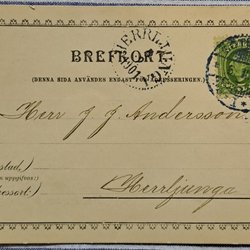 BREFKORT.
(DENNA SIDA ANVÄNDES ENDAST FÖR ADRESSERINGEN.)
HERRLJUNGA
Herr J. J. Andersson.
stad.)
uppgifves:
ressort:)
Herrljunga